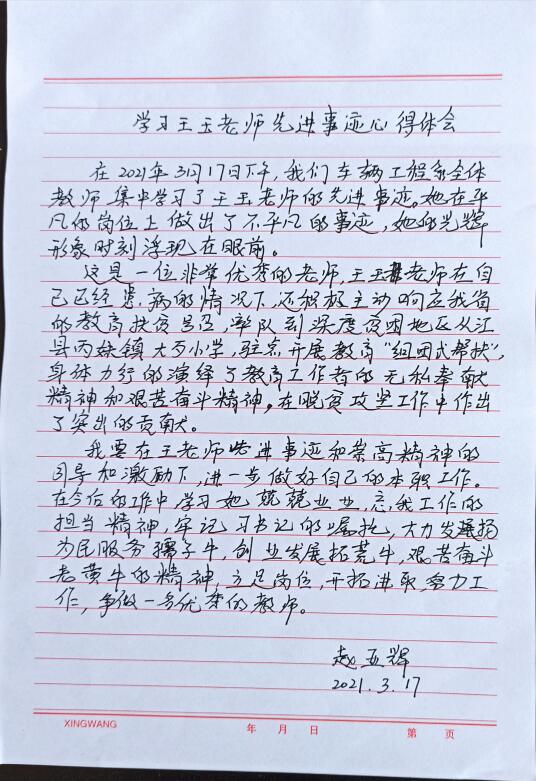 学习王玉老师先进事迹心得体会
在2021年3月17日下午,我们车辆工程系全体
教师集中学习了王玉老师的先进事迹。她在平
凡的岗位上做出了不平凡的事迹,她的光辉
形象时刻浮现在眼前。
这是一位非常优秀的老师,王玉老师在自
己已经患病的情况下,还积极主动响应我省
的教育扶贫号召,率队到深度贫困地区从江
县丙妹镇大歹小学,驻点开展教育“组团式帮扶”,
身体力行的演绎了教育工作者的无私奉献
精神和艰苦奋斗精神。在脱贫攻坚工作中作出
了突出的贡献。
我要在王老师先进事迹和崇高精神的
引导和激励下,进一步做好自己的本职工作。
在今后的工作中,学习她兢兢业业,忘我工作的
担当精神,牢记习书记的嘱托,大力发扬
为民服务孺子牛,创业发展拓荒牛,艰苦奋斗
老黄牛的精神,立足岗位,开拓进取,努力工
作,争做一名优秀的教师。
赵亚辉
2021.3.17
XINGWANG 年 月 日 第 页